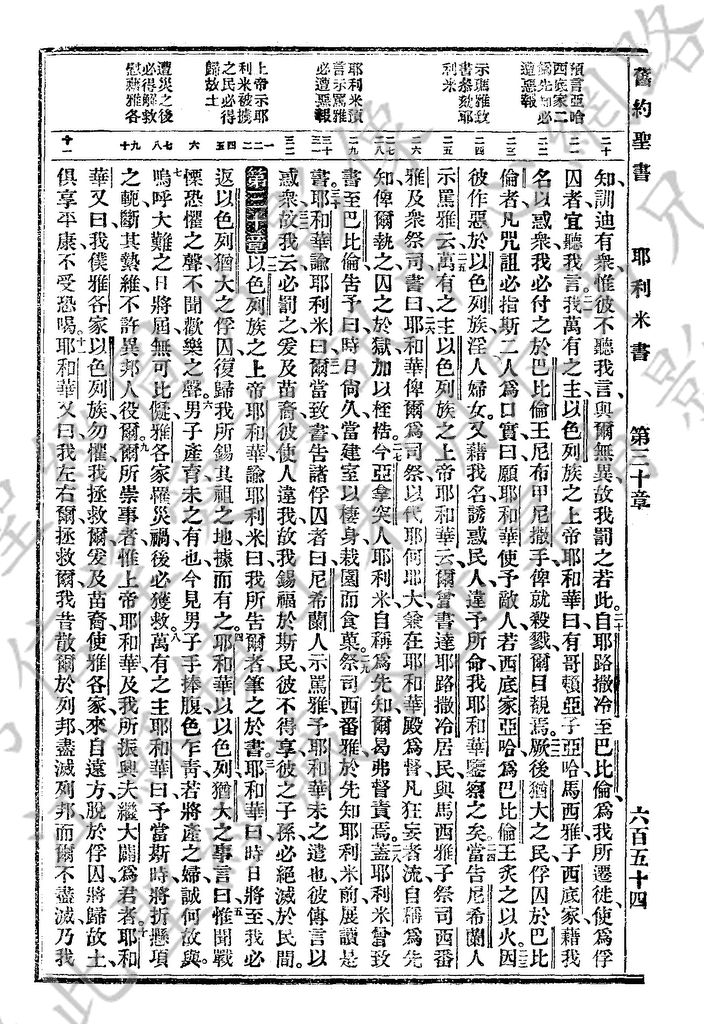 舊約聖書　耶利米書　第三十章　六百五十四
預言亞哈
西底家二
僞先知必
遭惡報
示瑪雅致
書參劾耶
利米
耶利米預
言示罵雅
必遭惡報
上帝示耶
利米被擄
之民必得
歸故土
遭災之後
必得解救
慰藉雅各
二十
二一
二二
二三
二四
二五
二六
二七
二八
二九
三十
三一
三二
一
二
三
四
五
六
七
八
九
十
十一
知訓迪有衆惟彼不聽我言與爾無異故我罰之若此自耶路撒冷至巴比倫爲我所遷徙使爲俘
囚者宜聽我言我萬有之主以色列族之上帝耶和華曰有哥賴亞子亞哈馬西雅子西底家藉我
名以惑衆我必付之於巴比倫王尼布甲尼撒手俾就殺戮爾目覩焉厥後猶大之民俘囚於巴比
倫者凡咒詛必指斯二人爲口實曰願耶和華使予敵人若西底家亞哈爲巴比倫王炙之以火因
彼作惡於以色列族淫人婦女又藉我名誘惑民人違予所命我耶和華鑒察之矣當告尼希蘭人
示罵雅云萬有之主以色列族之上帝耶和華云爾嘗書達耶路撒冷居民與馬西雅子祭司西番
雅及衆祭司書曰耶和華俾爾爲司祭以代耶何耶大爺在耶和華殿爲督凡狂妄者流自稱爲先
知俾爾執之囚之於獄加以桎梏今亞拿突人耶利米自稱爲先知爾曷弗督責焉蓋耶利米曾致
書至巴比倫告予曰時日尙久當建室以棲身栽園而食菓祭司西番雅於先知耶利米前展讀是
書耶和華諭耶利米曰爾當致書告諸俘囚者曰尼希蘭人示罵雅予耶和華未之遣也彼傳言以
惑衆故我云必罰之爰及苗裔彼使人違我故我錫福於斯民彼不得享彼之子孫必絕滅於民間
第三十章以色列族之上帝耶和華諭耶利米曰我所告爾者筆之於書耶和華曰時日將至我必
返以色列猶大之俘囚復歸我所錫其祖之地據而有之耶和華以以色列猶大之事言曰惟聞戰
慄恐懼之聲不聞歡樂之聲男子產育未之有也今見男子手捧腹色乍靑若將產之婦誠何故與
嗚呼大難之日將屆無可比儗雅各家罹災禍後必獲救萬有之主耶和華曰予當斯時將折懸項
之軛斷其縶維不許異邦人役爾爾所崇事者惟上帝耶和華及我所振興夫繼大闢爲君者耶和
華又曰我僕雅各家以色列族勿懼我拯救爾爰及苗裔使雅各家來自遠方脫於俘囚將歸故土
俱享平康不受恐喝耶和華又曰我左右爾拯救爾我昔散爾於列邦盡滅列邦而爾不盡滅乃我